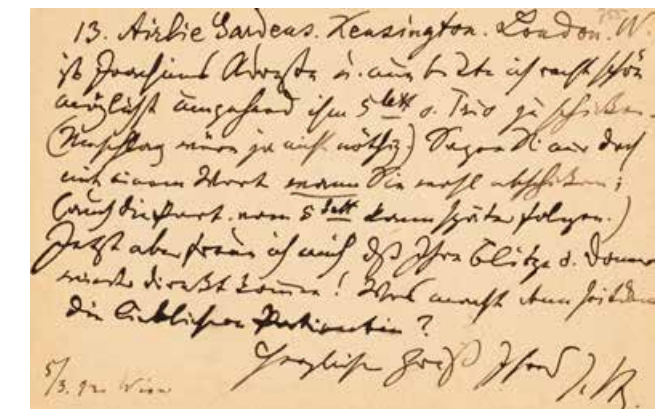 13. Airlie Gardens. Kensington. London. W.
ist Joachims Adresse u. nun bitte ich recht schön
möglichst umgehend ihm 5tett o. Trio zu schicken.
(Umschlag wäre ja nicht nöthig) Sagen Sie mir doch
mit einem Wort wann Sie wohl abschicken;
(auch die Part. vom 5tett kann später folgen.)
Jetzt aber freue ich mich dß Ihre Blitze u. Donner
direkt kommen! Was macht denn
die lieblichen Patientin?
Herzlichen Gruß Ihres J. Br.
5/3. 92 Wien